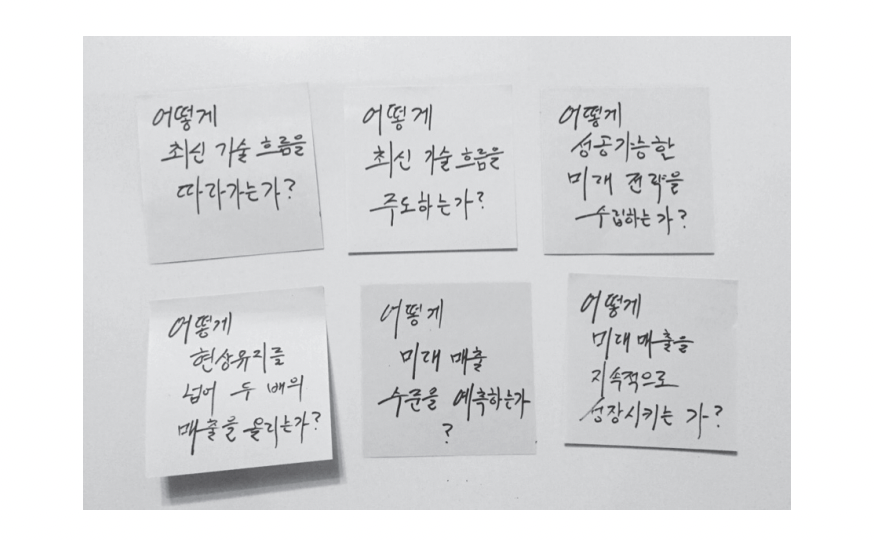 어떻게
최신 기술 흐름을
따라가는가?
어떻게
최신 기술 흐름을
주도하는가?
어떻게
성공가능한
미래 전략을
수립하는가?
어떻게
현상유지를
넘어 두 배의
매출을 올리는가?
어떻게
미래 매출
수준을 예측하는가
?
어떻게
미래 매출을
지속적으로
성장시키는 가?